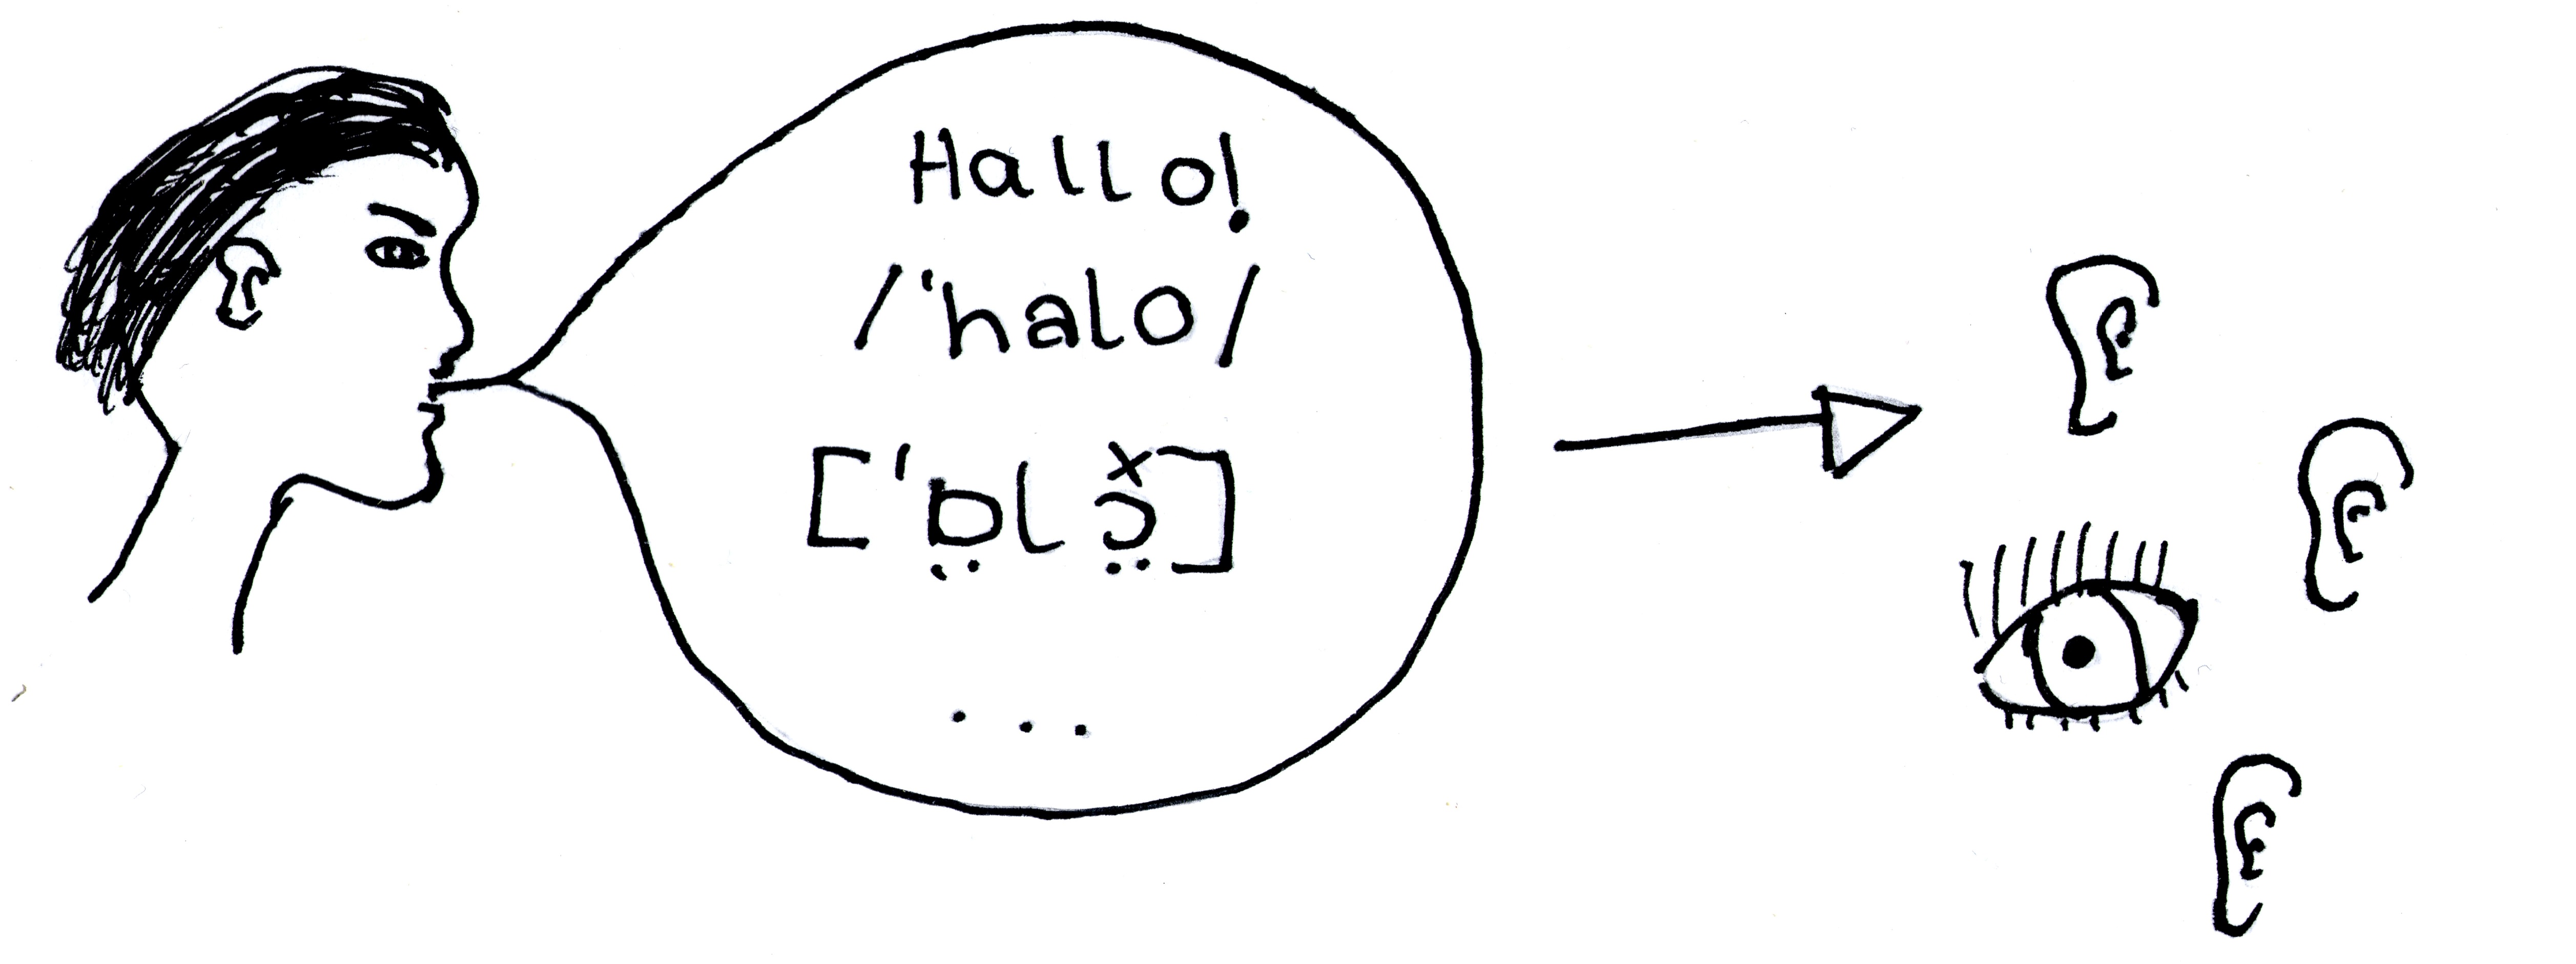 Hallo!
/'halo/
['ɒ̤lɔ̤̽]
...